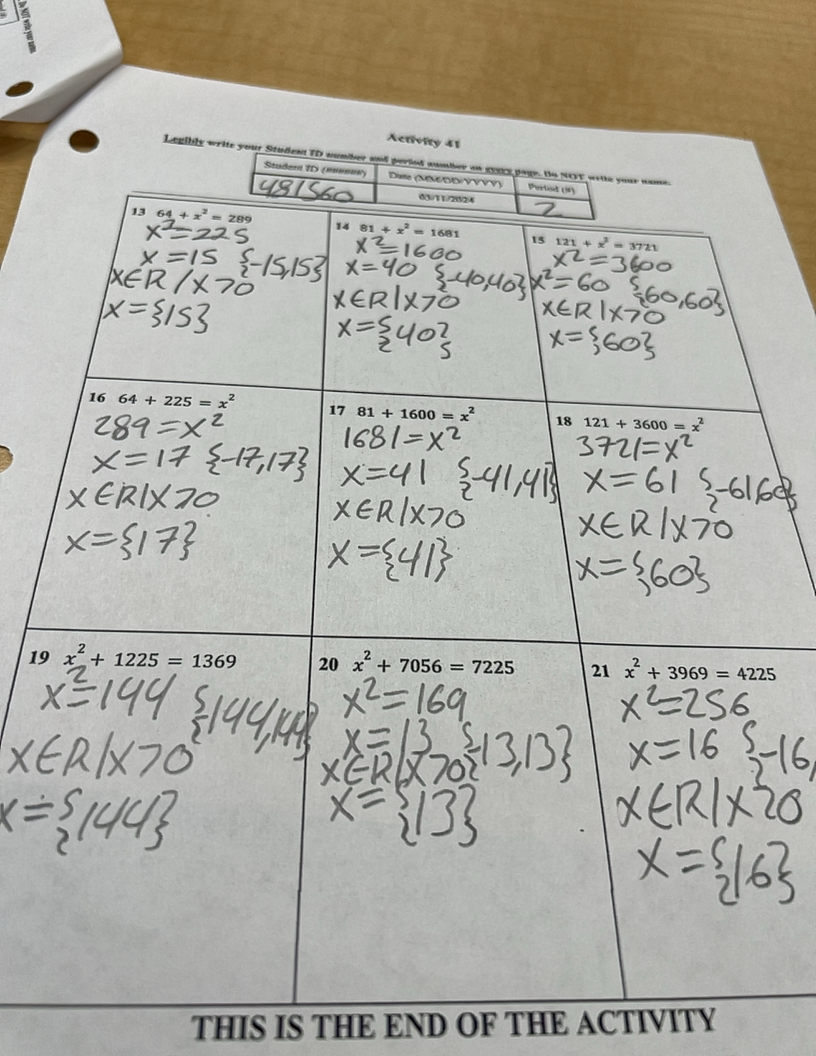 Activity 41
Legibly write your Student ID number and period number on every page. Do NOT write your name.
Student ID (######) Date (MM/DD/YYYY) Period (#)
481560 03/11/2024 2
13 64 + x² = 289
x²=225
x=15 {-15,15}
x∈R/x>0
x={15}
14 81 + x² = 1681
x²=1600
x=40 {-40,40}
x∈R|x>0
x={40}
15 121 + x² = 3721
x²=3600
x²=60 {60,60}
x∈R|x>0
x={60}
16 64 + 225 = x²
289=x²
x=17 {-17,17}
x∈R|x>0
x={17}
17 81 + 1600 = x²
1681=x²
x=41 {-41,41}
x∈R|x>0
x={41}
18 121 + 3600 = x²
3721=x²
x=61 {-61,60}
x∈R|x>0
x={60}
19 x² + 1225 = 1369
x²=144 {-144,144}
x∈R|x>0
x={144}
20 x² + 7056 = 7225
x²=169
x=13 {-13,13}
x∈R|x>0
x={13}
21 x² + 3969 = 4225
x²=256
x=16 {-16,
x∈R|x>0
x={16}
THIS IS THE END OF THE ACTIVITY